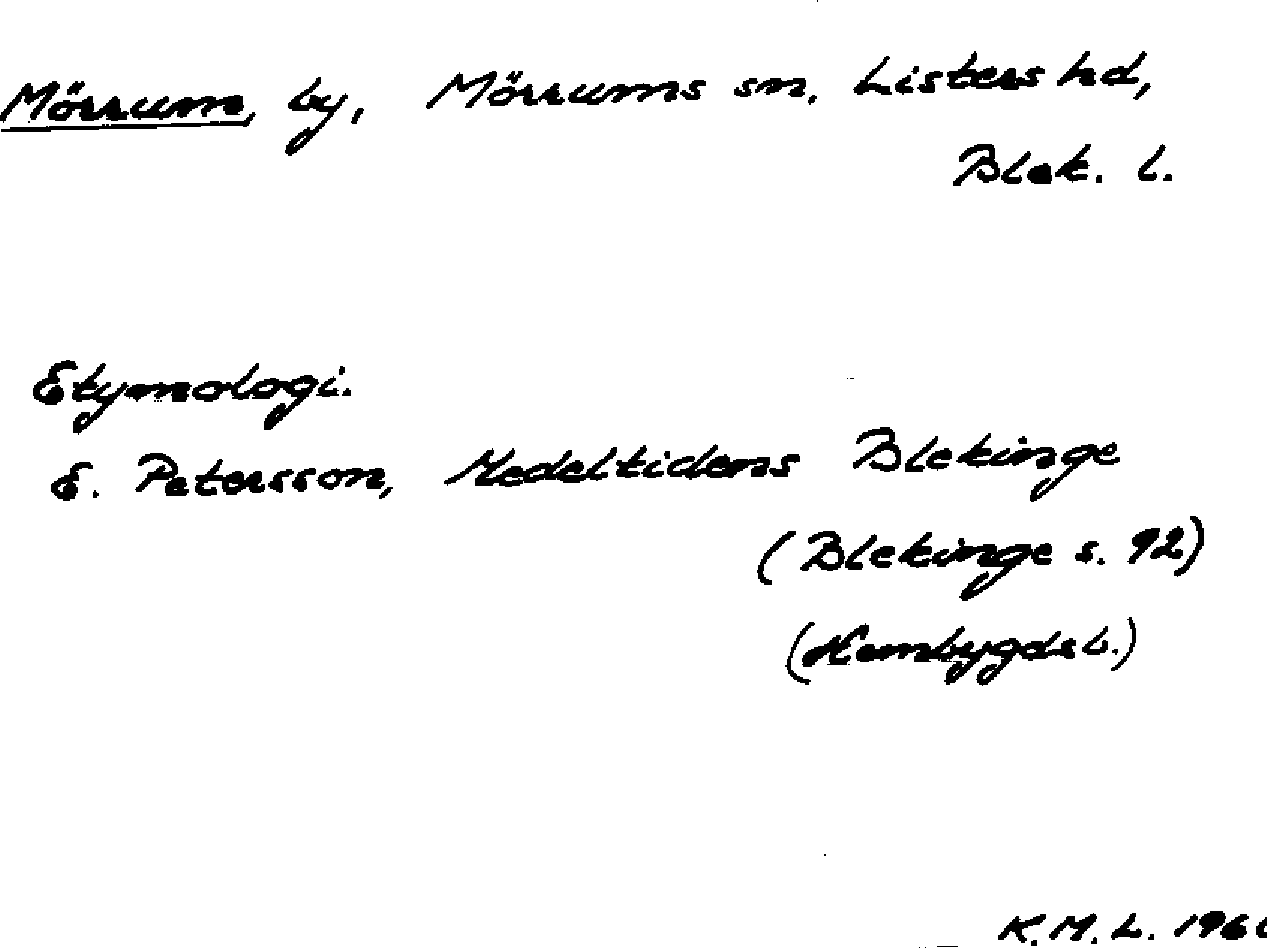 Mörrum, by, Mörrums sn, Listers hd,
Blek. l.
Etymologi.
E. Petersson, Medeltidens Blekinge
(Blekinge s. 92)
(Hembygdsb.)
K.M.L.